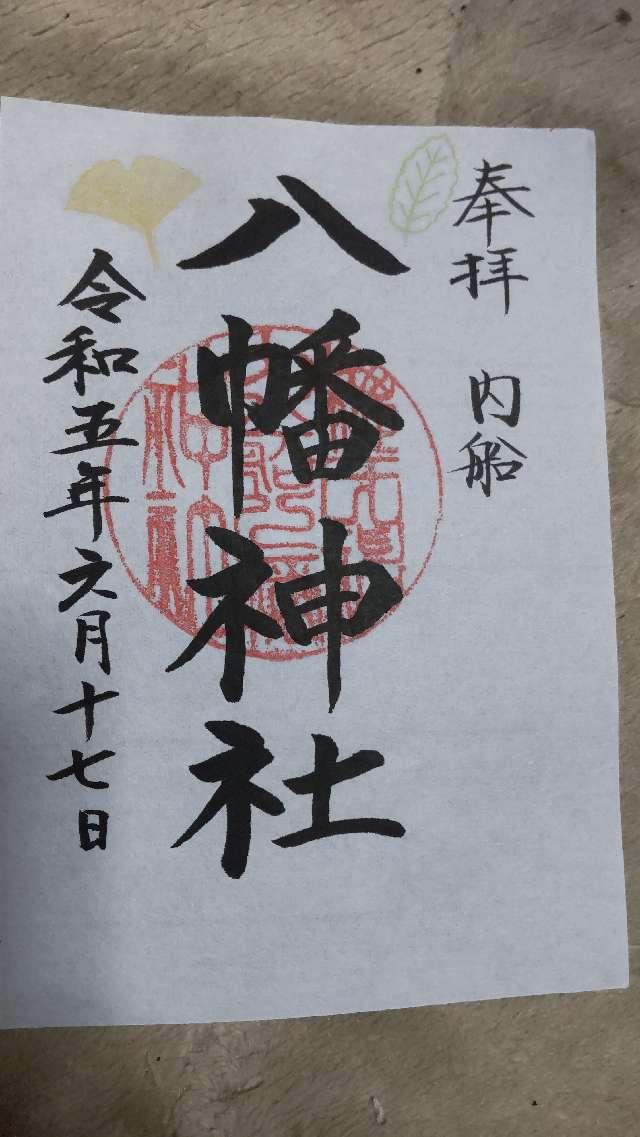 奉拝 内船
八幡神社
令和五年六月十七日